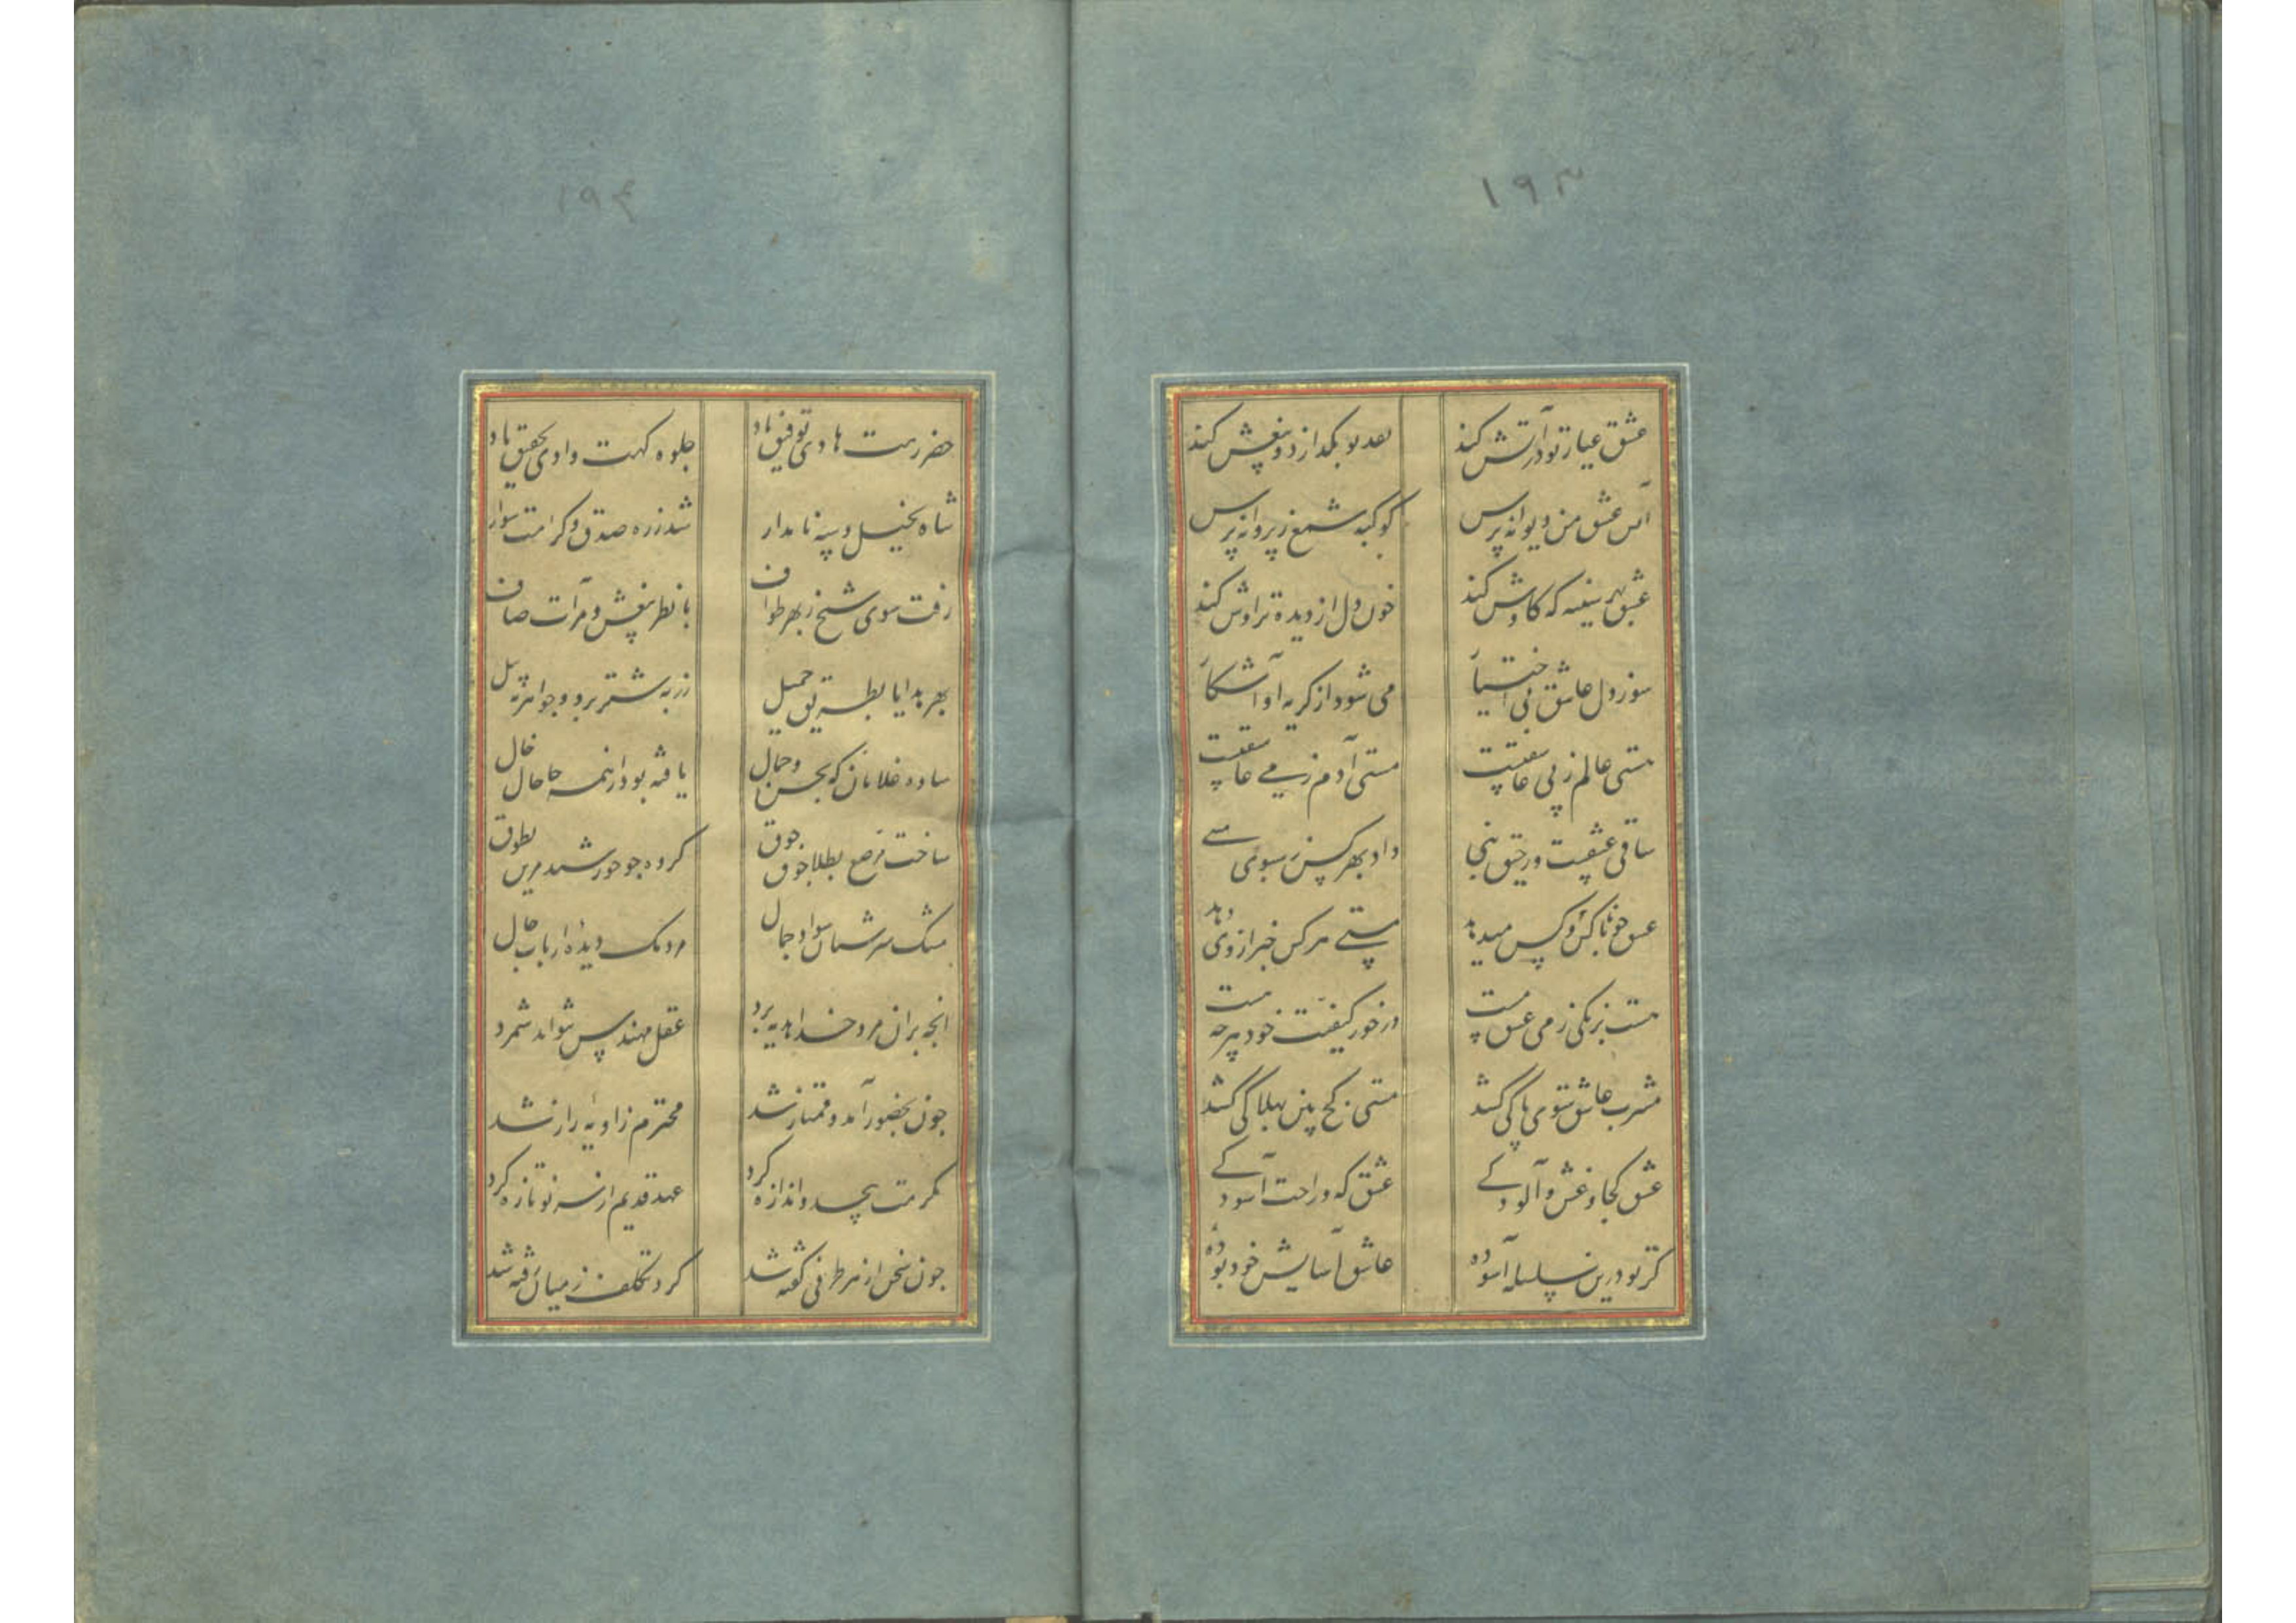 ۱۹۳
عشق عیار تو در آتش کند بعد تو بگدازد و بیغش کند
عشق من دیوانه پرس کوکبه شمع ز پروانه پرس
عشق بهر سینه که کاوش کند خون دل از دیده تراوش کند
سوز دل عاشق بی اختیار می شود از گریه او آشکار
مستی عالم ز پی عاشقیست مستی آدم ز می عاشقیست
ساقی عشقست و رحیق داد بهر کس ز سبوی
عشق کس میدهد مستی هر کس خبر از وی دهد
مست ز می عشق مست در خور کیفیت خود هر چه هست
مشرب عاشق سوی پاکی کشد مستی کج بین بهلاکی کشد
عشق کجا و غش و آلودگی عشق که و راحت آسودگی
گر تو درین سلسله آسوده عاشق آسایش خود بوده
۱۹۴
خضر رهت هادی توفیق باد جلوه گهت وادی تحقیق باد
شاه بخیل و سپه نامدار شد ز ره صدق و کرامت سوار
رفت سوی شیخ ز بهر طواف با نظر بیغش و مرآت صاف
بهر هدایا بطریق جمیل زر به شتر برد و جواهر به پیل
ساده غلامان که بحسن و جمال یافته بود از همه جا حال خال
ساخت مرصع بطلا جوق جوق کرده چو خورشید مزین بطوق
مشک سرشتان سواد جمال مردمک دیده ارباب حال
آنچه بر آن مرد خدا هدیه برد عقل مهندس نتواند شمرد
چون بحضور آمد و ممتاز شد محترم زاویه راز شد
مکرمت بیحد و اندازه کرد عهد قدیم از سر نو تازه کرد
چون سخن از هر طرفی گفته شد گرد تکلف ز میان رفته شد